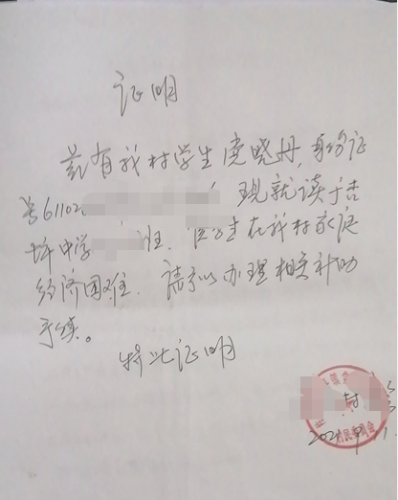 证明
兹有我村学生庞晓丹,身份证
号61102 现就读于杏
坪中学 班. 该生在我村家庭
经济困难. 请予以办理相关补助
手续。
特此证明
村
202